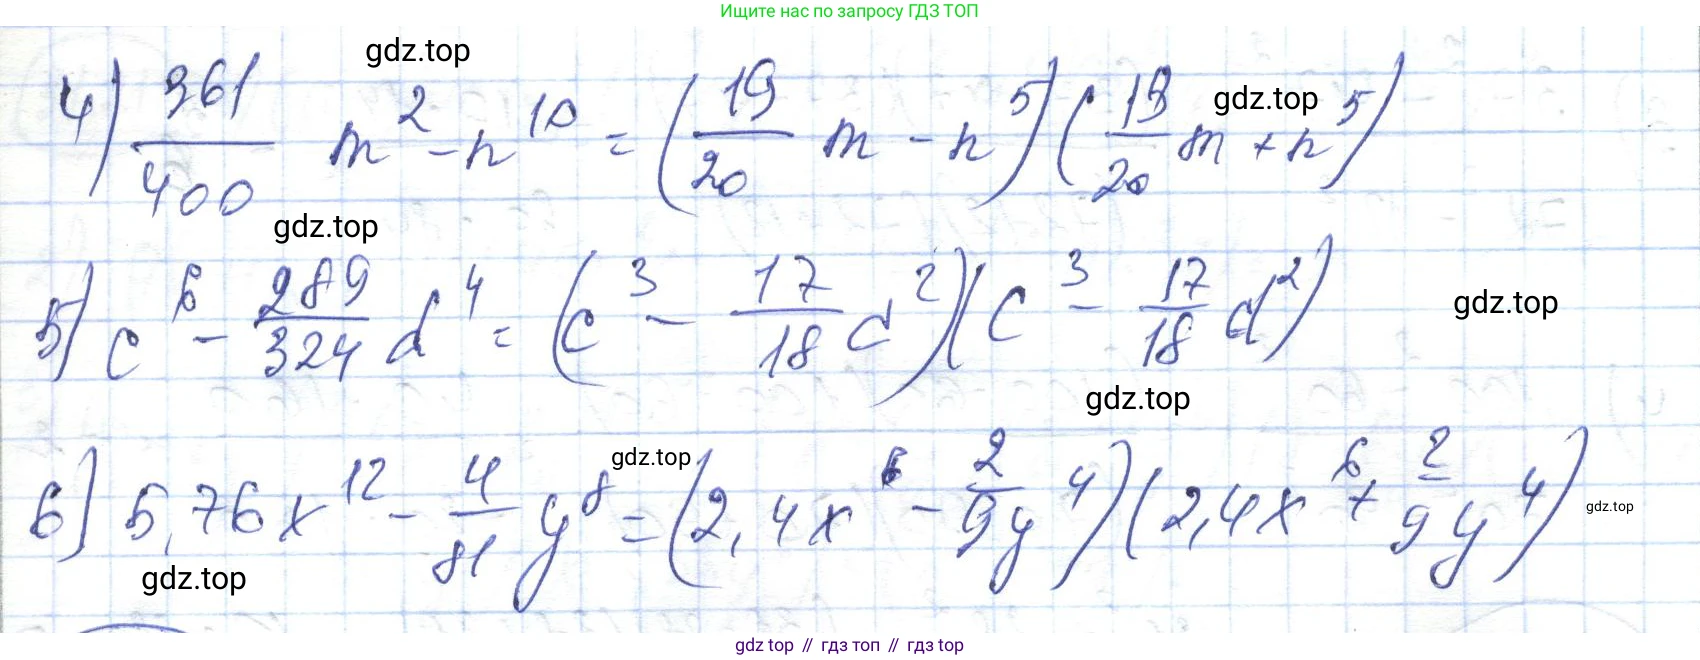 Ищите нас по запросу ГДЗ ТОП
gdz.top
4) 361/400 m² - n¹⁰ = (19/20 m - n⁵)(19/20 m + n⁵)
gdz.top
gdz.top
5) c⁶ - 289/324 d⁴ = (c³ - 17/18 d²)(c³ - 17/18 d²)
gdz.top
gdz.top
gdz.top
6) 5,76x¹² - 4/81 y⁸ = (2,4x⁶ - 2/9 y⁴)(2,4x⁶ + 2/9 y⁴)
gdz.top
gdz.top
gdz top // гдз топ // гдз top